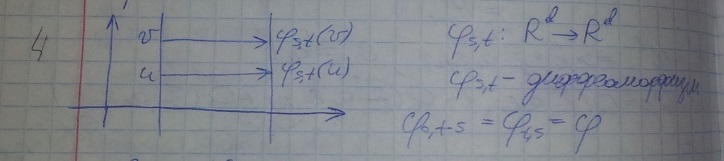 4
v φ_{s,t}(v)
u φ_{s,t}(u)
φ_{s,t}: R^d → R^d
φ_{s,t} - диффеоморфизм
φ_{0,t-s} = φ_{t,s} = φ